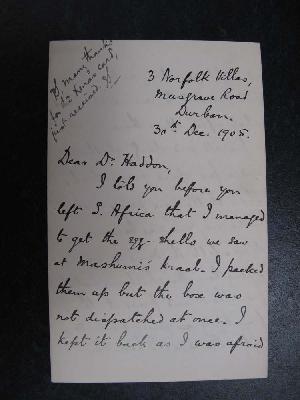 P.S. many thanks
for the Xmas card,
just received.
3 Norfolk Villas,
Musgrave Road
Durban.
30th Dec. 1905.
Dear Dr. Haddon,
I told you before you
left S. Africa that I managed
to get the egg-shells we saw
at Mashumi's kraal. I packed
them up but the box was
not dispatched at once. I
kept it back as I was afraid